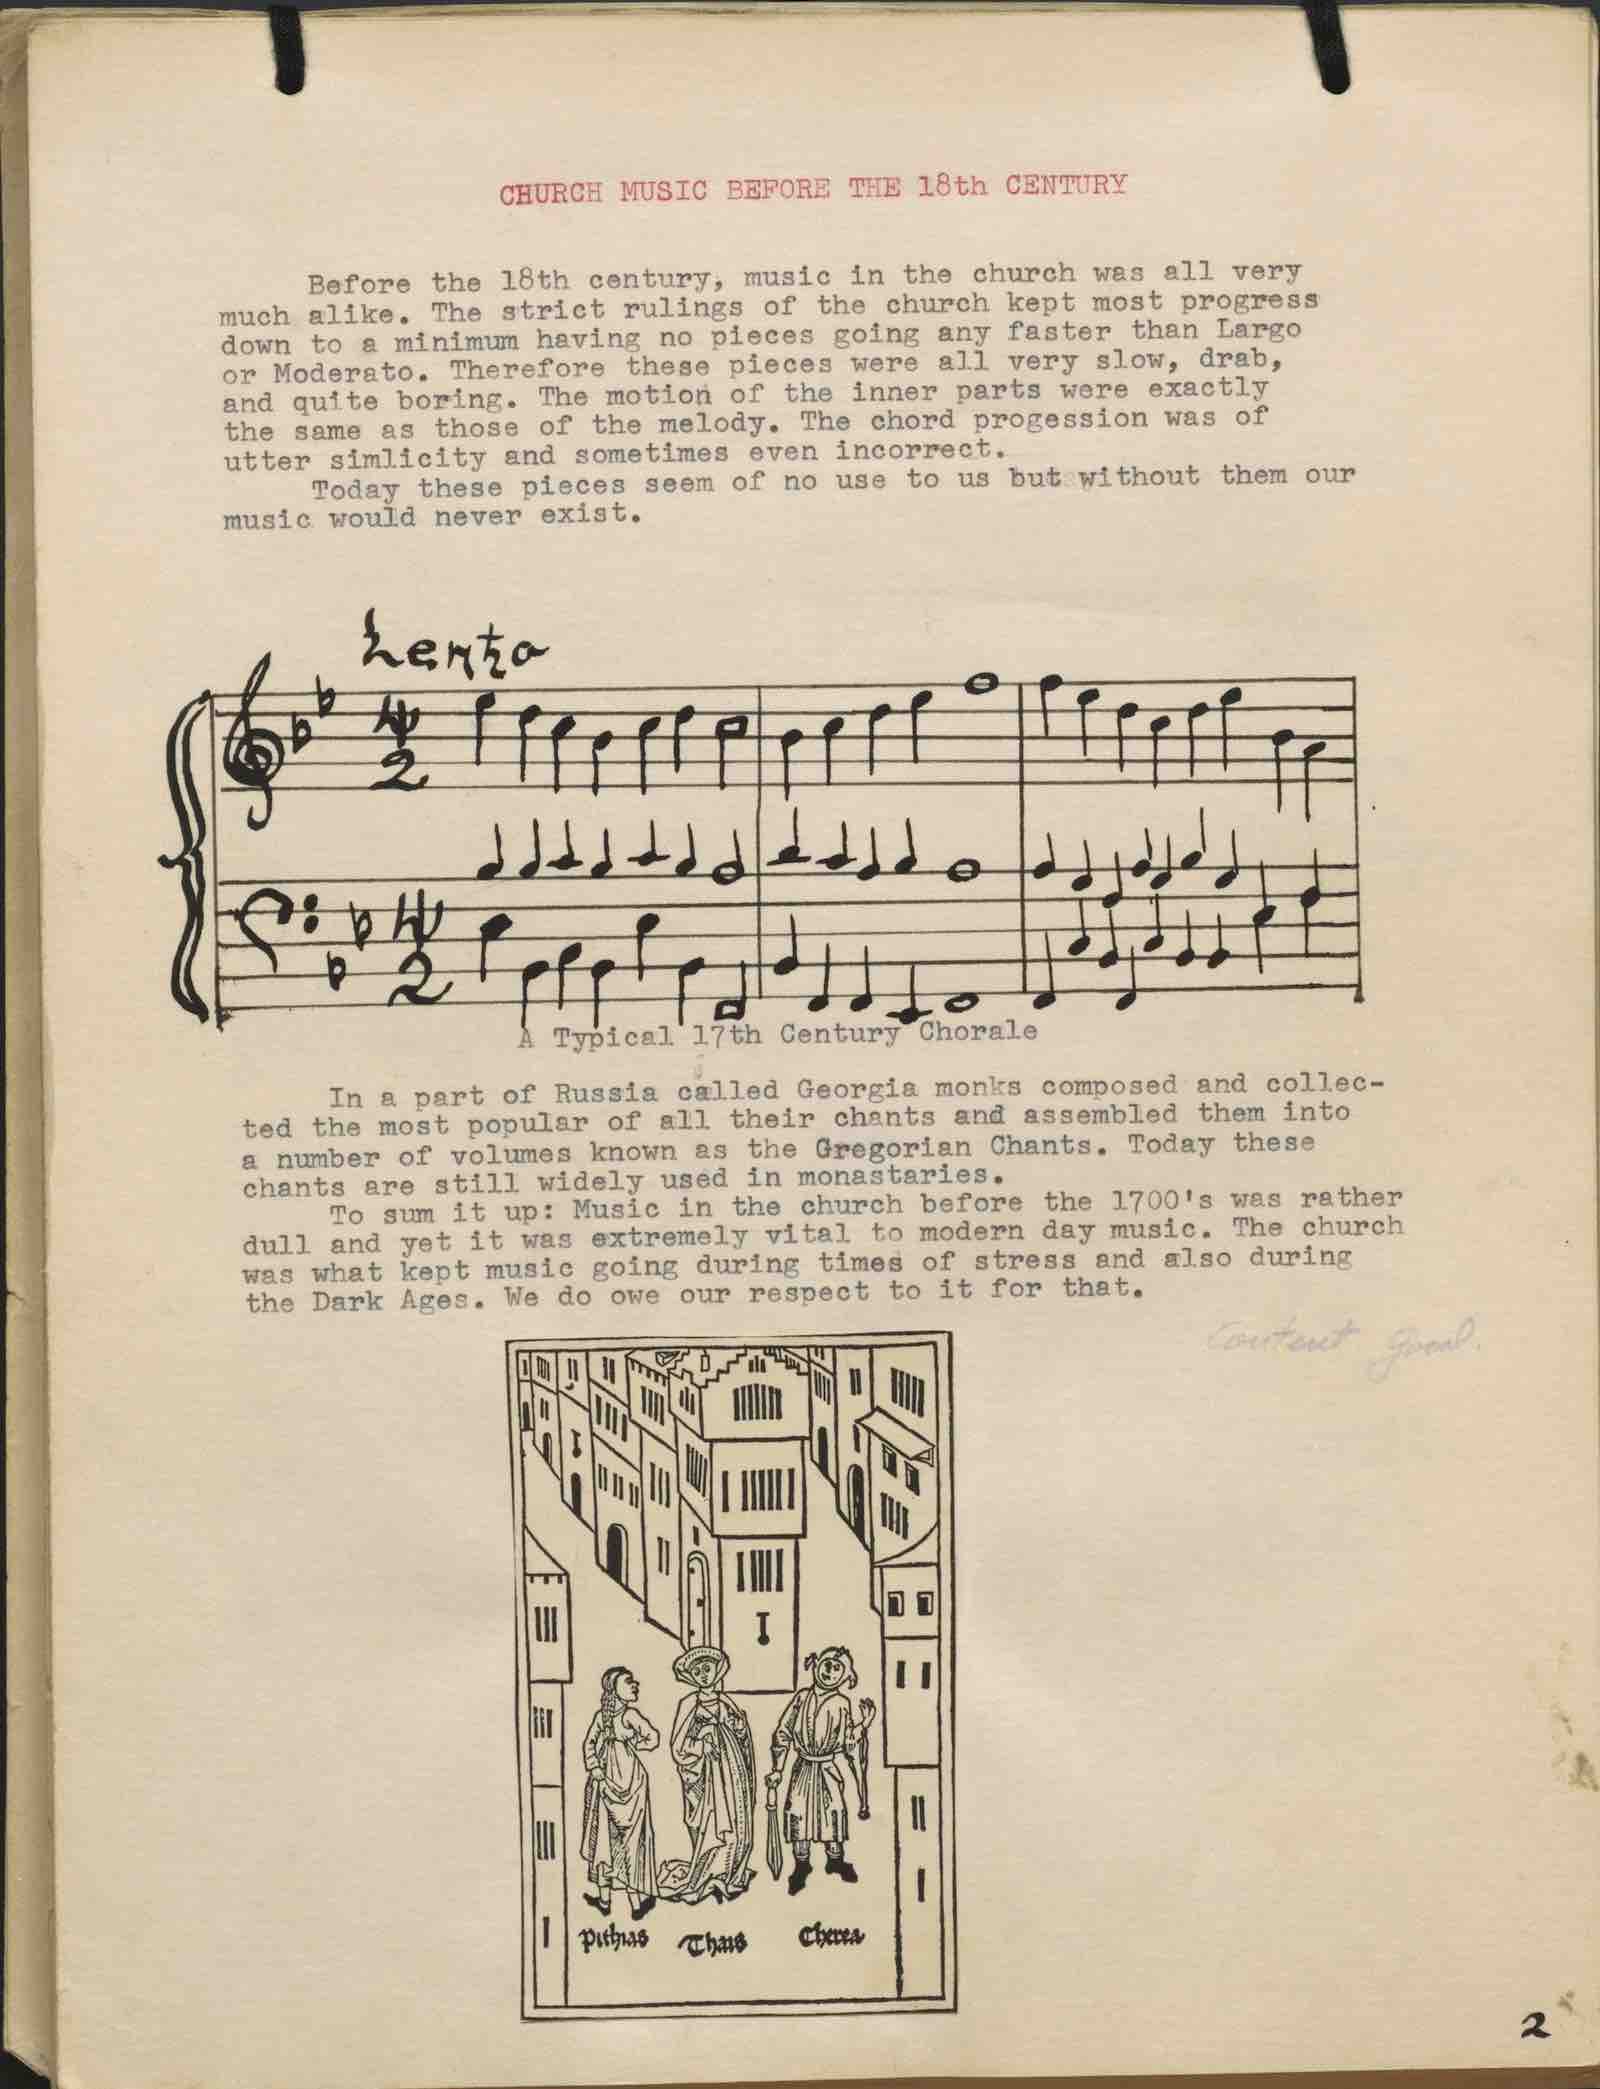 CHURCH MUSIC BEFORE THE 18th CENTURY
Before the 18th century, music in the church was all very
much alike. The strict rulings of the church kept most progress
down to a minimum having no pieces going any faster than Largo
or Moderato. Therefore these pieces were all very slow, drab,
and quite boring. The motion of the inner parts were exactly
the same as those of the melody. The chord progession was of
utter simlicity and sometimes even incorrect.
Today these pieces seem of no use to us but without them our
music would never exist.
Lento
4
2
4
2
A Typical 17th Century Chorale
In a part of Russia called Georgia monks composed and collec-
ted the most popular of all their chants and assembled them into
a number of volumes known as the Gregorian Chants. Today these
chants are still widely used in monastaries.
To sum it up: Music in the church before the 1700's was rather
dull and yet it was extremely vital to modern day music. The church
was what kept music going during times of stress and also during
the Dark Ages. We do owe our respect to it for that.
Content good.
Pithias Thais Cherea
2